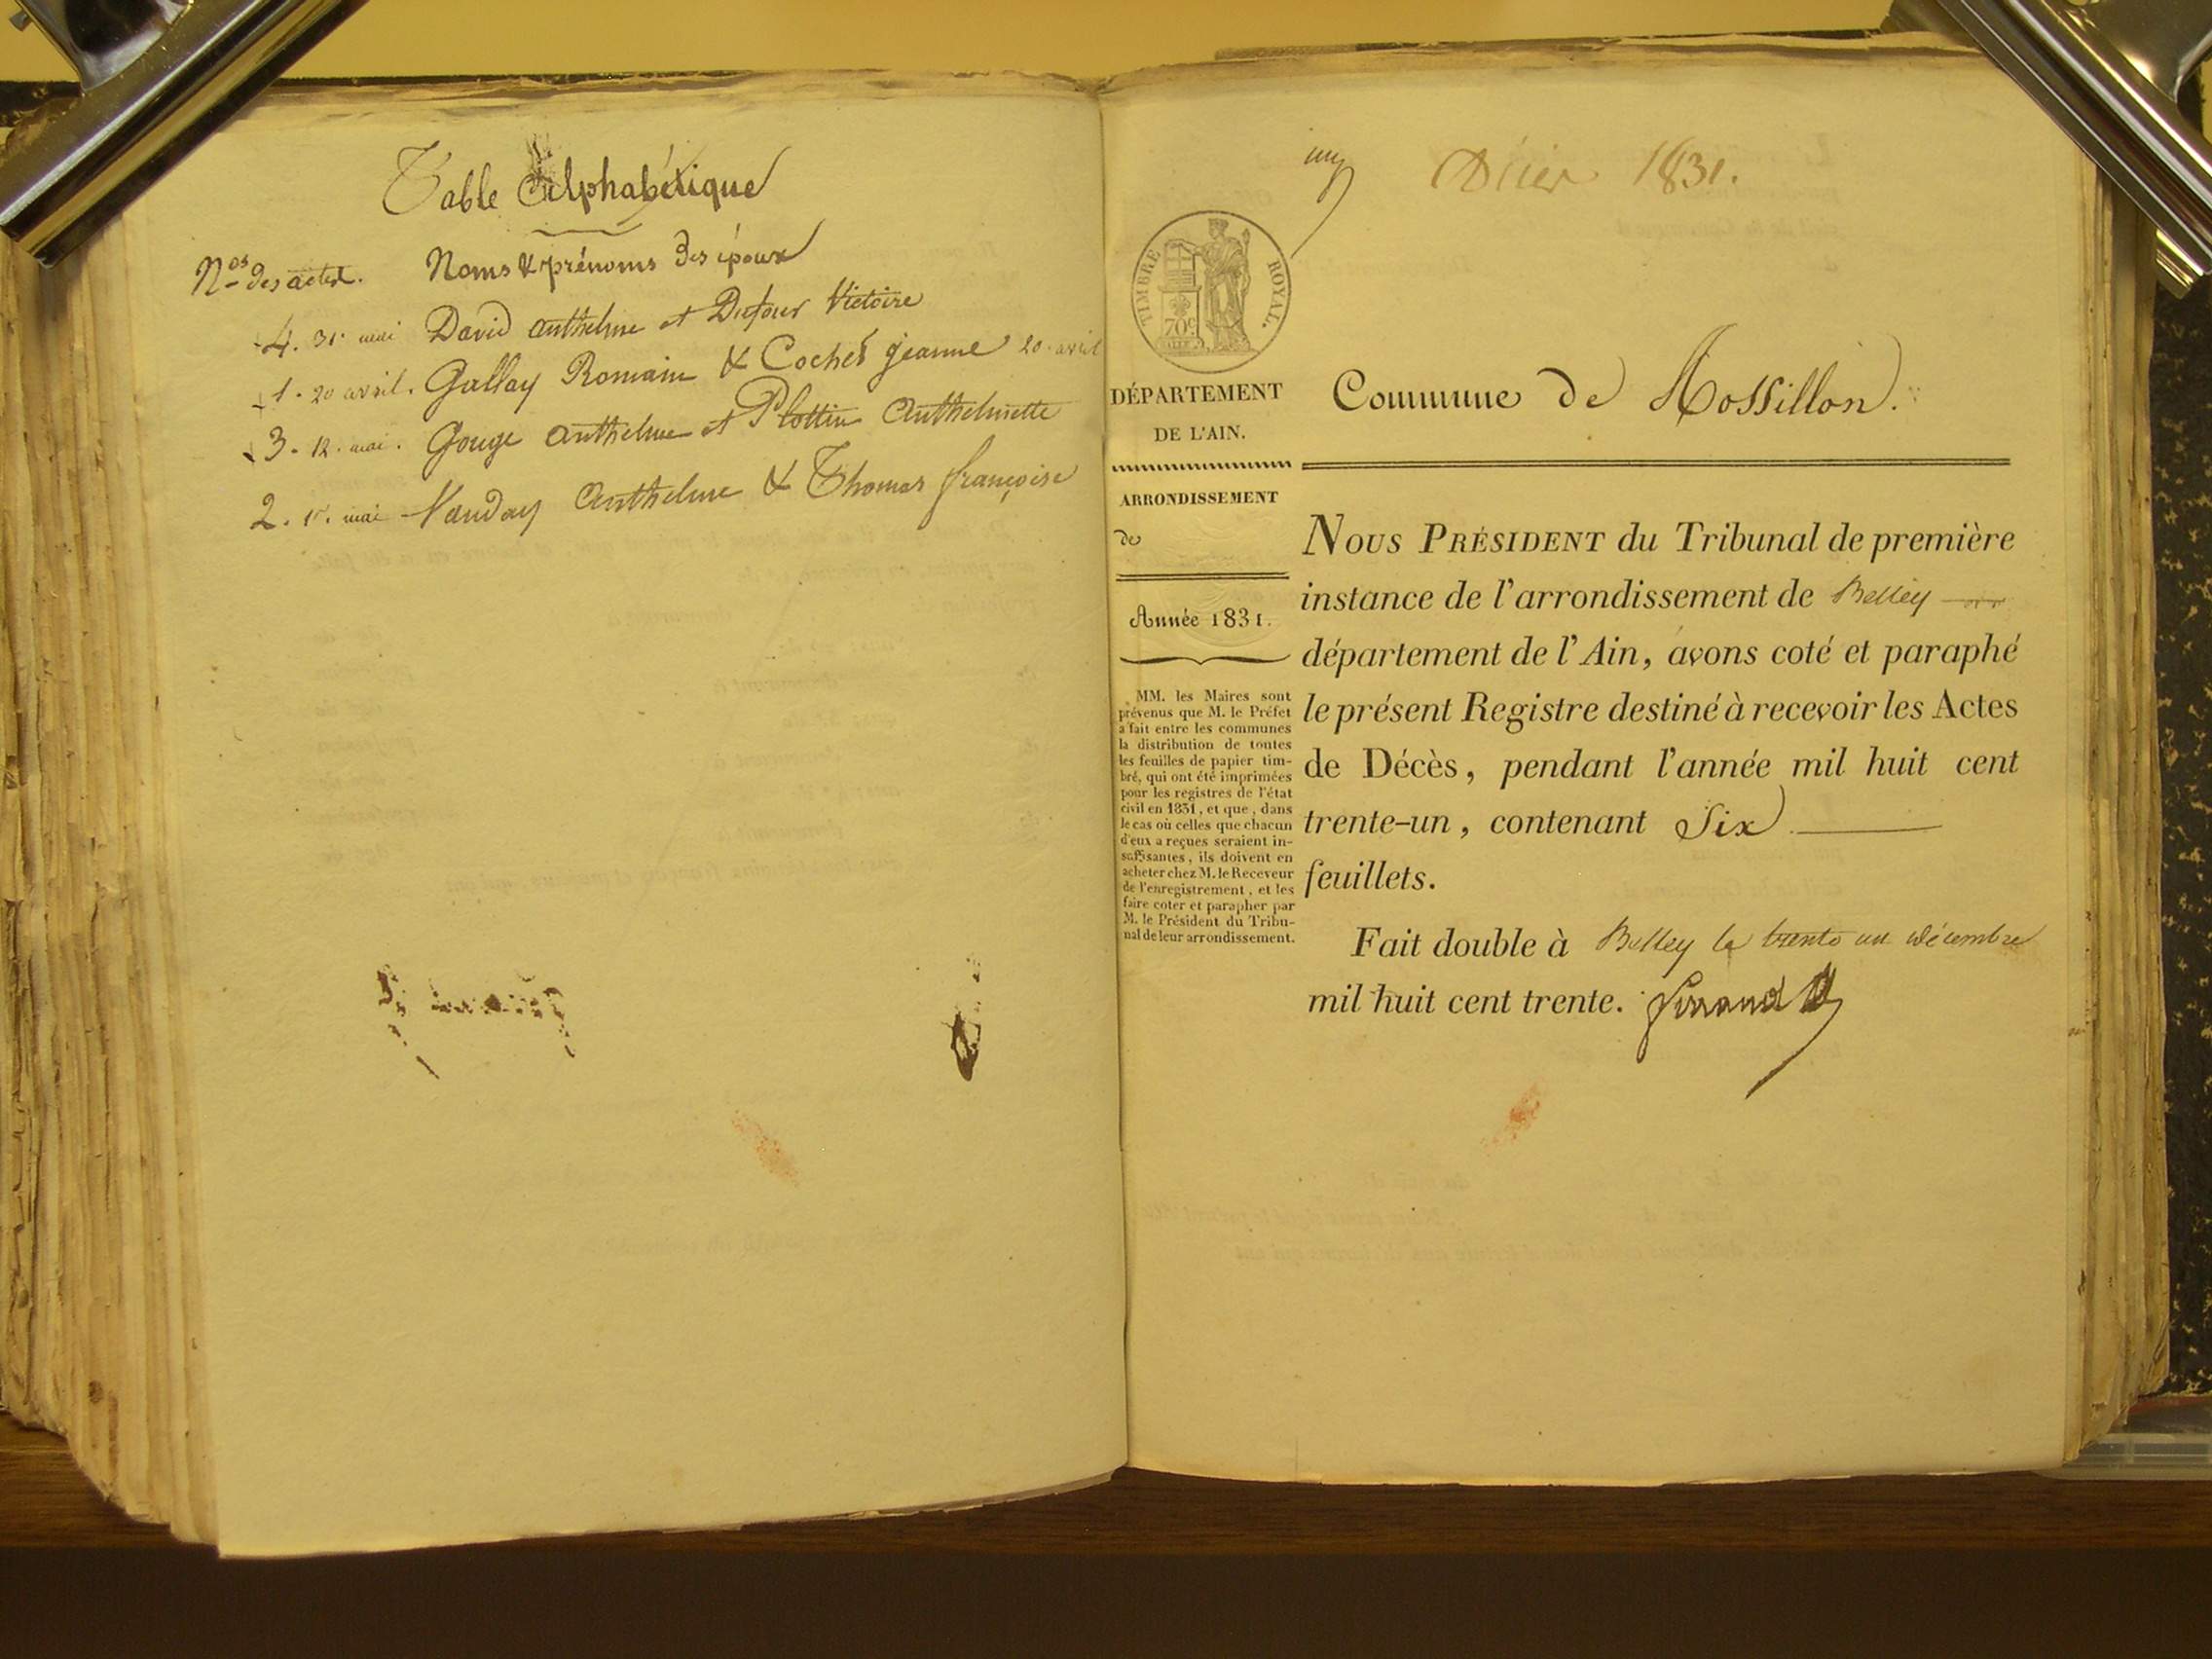 Table Alphabétique
Nos des actes. Noms & prénoms des époux
4. 31 mai David anthelme et Dufour Victoire
1. 20 avril. Gallay Romain & Cochet jeanne 20 avril
3. 12. mai. Gouge anthelme et Plottin Anthelmette
2. 1r. mai Vanday Anthelme & Thomas françoise
un
1831.
TIMBRE ROYAL.
70c
DÉPARTEMENT
DE L'AIN.
Commune de Rossillon.
ARRONDISSEMENT
de
Année 1831.
MM. les Maires sont
prévenus que M. le Préfet
a fait entre les communes
la distribution de toutes
les feuilles de papier tim-
bré, qui ont été imprimées
pour les registres de l'état
civil en 1831, et que, dans
le cas où celles que chacun
d'eux a reçues seraient in-
suffisantes, ils doivent en
acheter chez M. le Receveur
de l'enregistrement, et les
faire coter et parapher par
M. le Président du Tribu-
nal de leur arrondissement.
NOUS PRÉSIDENT du Tribunal de première
instance de l'arrondissement de Belley
département de l'Ain, avons coté et paraphé
le présent Registre destiné à recevoir les Actes
de Décès, pendant l'année mil huit cent
trente-un, contenant Six
feuillets.
Fait double à Belley le trente un décembre
mil huit cent trente.